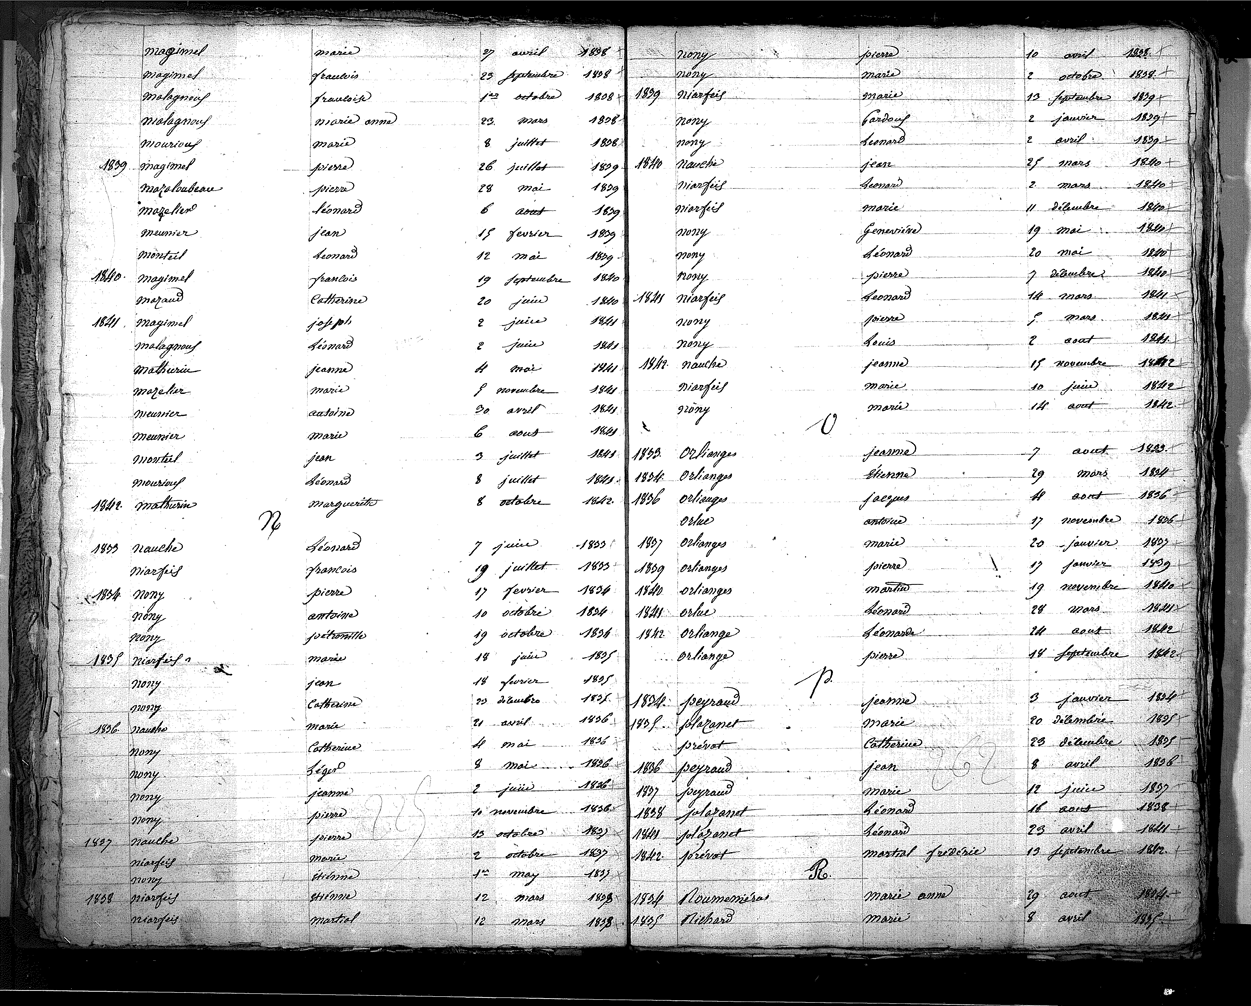 magimel marie 27 avril 1838
magimel francois 23 septembre 1838
malagnoux francoise 1er octobre 1838
malagnoux marie anne 23 mars 1838
mourioux marie 8 juillet 1838
1839 magimel pierre 26 juillet 1839
mazaloubeau pierre 28 mai 1839
mazelier léonard 6 aout 1839
meunier jean 15 fevrier 1839
monteil Leonard 12 mai 1839
1840 magimel francois 19 septembre 1840
mazaud Catherine 20 juin 1840
1841 magimel joseph 2 juin 1841
malagnoux Léonard 2 juin 1841
mathurin jeanne 4 mai 1841
mazelier marie 5 novembre 1841
meunier antoine 30 avril 1841
meunier marie 6 aout 1841
monteil jean 3 juillet 1841
mourioux Léonard 8 juillet 1841
1842 mathurin marguerite 8 octobre 1842
N
1833 nauche Léonard 7 juin 1833
niarfeix francois 19 juillet 1833
1834 nony pierre 17 fevrier 1834
nony antoine 10 octobre 1834
nony pétronille 19 octobre 1834
1835 niarfeix marie 18 juin 1835
nony jean 18 fevrier 1835
nony Catherine 23 décembre 1835
1836 nauche marie 21 avril 1836
nony Catherine 4 mai 1836
nony Léger 8 mai 1836
nony jeanne 2 juin 1836
nony pierre 10 novembre 1836
1837 nauche pierre 13 octobre 1837
niarfeix marie 2 octobre 1837
nony étienne 1er may 1837
1838 niarfeix étienne 12 mars 1838
niarfeix martial 12 mars 1838
225
nony pierre 10 avril 1838
nony marie 2 octobre 1838
1839 niarfeix marie 13 septembre 1839
nony Pardoux 2 janvier 1839
nony Leonard 2 avril 1839
1840 nauche jean 25 mars 1840
niarfeix Leonard 2 mars 1840
niarfeix marie 11 décembre 1840
nony Geneviève 19 mai 1840
nony Léonard 20 mai 1840
nony pierre 7 décembre 1840
1841 niarfeix Leonard 14 mars 1841
nony pierre 5 mars 1841
nony Louis 2 aout 1841
1842 nauche jeanne 15 novembre 1842
niarfeix marie 10 juin 1842
nony marie 14 aout 1842
O
1833 Orlianges jeanne 7 aout 1833
1834 Orlianges Etienne 29 mars 1834
1836 orlianges jacques 4 aout 1836
Orluc antoine 17 novembre 1836
1837 Orlianges marie 20 janvier 1837
1839 orlianges pierre 17 janvier 1839
1840 orlianges martin 19 novembre 1840
1841 orluc Léonard 28 mars 1841
1842 Orliange Léonarde 24 aout 1842
Orliange pierre 18 septembre 1842
P
1834 peyraud jeanne 3 janvier 1834
1835 plazanet marie 20 décembre 1835
prévot Catherine 23 décembre 1835
1836 peyraud jean 8 avril 1836
1837 peyraud marie 12 juin 1837
1838 plazanet Léonard 16 aout 1838
1841 plazanet Léonard 23 avril 1841
1842 prévot martial frédéric 13 septembre 1842
262
R
1834 Roumeniéras marie anne 29 aout 1834
1835 Richard marie 8 avril 1835